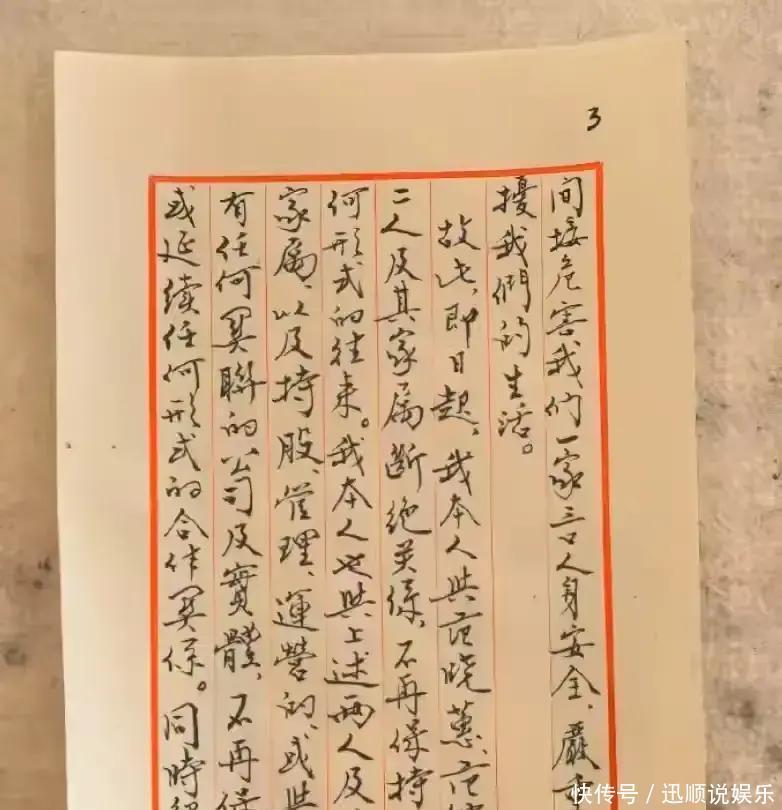 3
间接危害我们一家三口人身安全、嚴重
擾我們的生活。
故此,即日起,我本人與范晓蕙、范
二人及其家属断绝关係,不再保持
何形式的往来。我本人也與上述兩人及
家属、以及持股、管理、運營的、或與
有任何関聯的公司及實體,不再
或延续任何形式的合作関係。同時
快传号/迅顺说娱乐